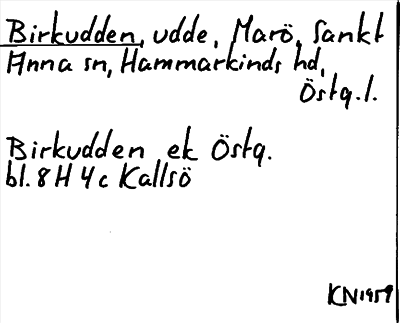 Birkudden, udde, Marö, Sankt
Anna sn, Hammarkinds hd,
Östg.l.
Birkudden ek Östg.
bl. 8 H 4 c Kallsö
KN 1959